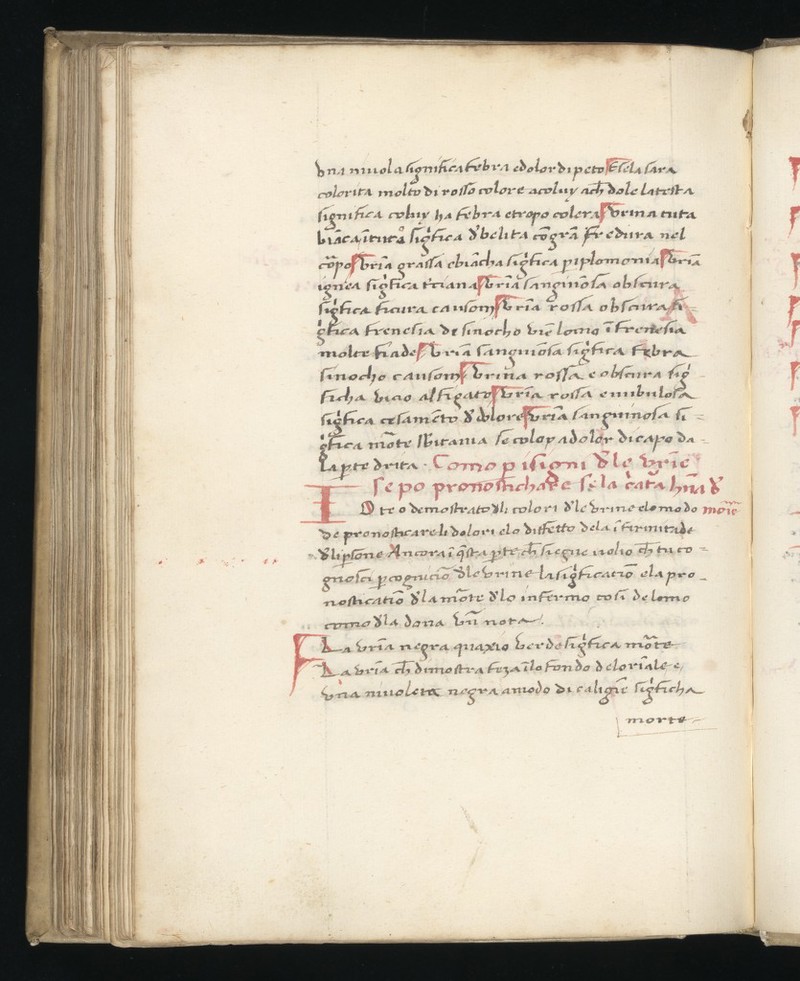 vna niuola significa febra e dolor di peto E se la sara
colorita molto di rosso colore a coluy a ch̄ dole la testa
significa coluy ha febra e tropo colera Vrina tuta
biāca
cōpo vrīa grassa e biācha sigīfica p iplomonia vrīa
ignea sigīfica terciana vrīa sanguinosa obscura
sigīfica ficura causom vrīa rossa obscura si
gīfica frenesia de sinocho
molte fiade vrīa sanguinosa sigīfica febra
sinocho causom vrina rossa e obscura sig
ficha vicio al figato vrīa rossa e nubulosa
sigīfica cesamēto d dolore vrīa sanguinosa si=
gīfica mōte se colop a dolor di capo da=
la pte drita. Como p i signi dle vrīe
se po pronostichare se la
Io te o demostrato dli colori dle vrine e lo modo morte
de pronosticare li dolori e lo diffetto de la ifirmitade
dli psone Ancora ī q̄sta pte ch̄ siegue uolio ch̄ tu co=
gnosci p cognicio̅ dle vrine la sigīficatio̅ e la pro_
nosticatio̅ dla mōte dlo infermo cosi de lomo
como dla dona vn̄ nota.
La vrīa negra quaxio verde sigīfica mōte
La vrīa ch̄ dimostra feza ī lo fondo de loriale e
vna niuoleta negra a modo di caligīe sigīficha
morte